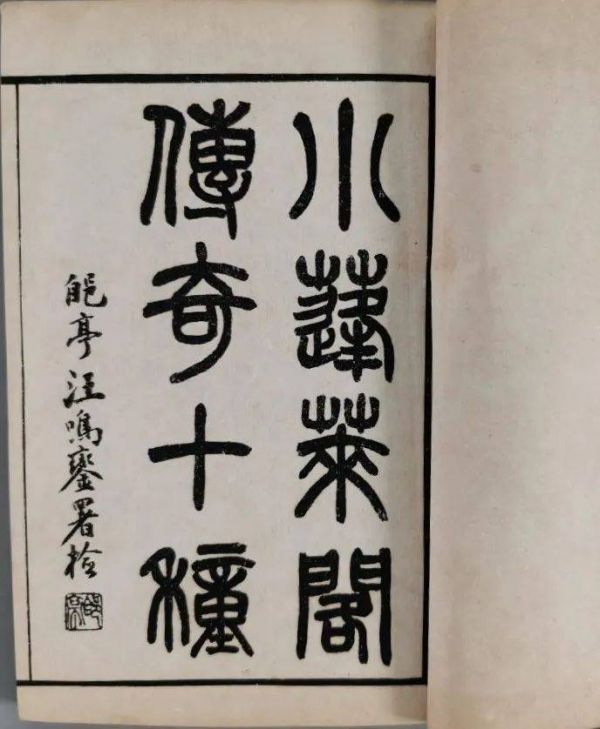 小蓬萊閣
傳奇十種
郋亭汪鳴鑾署檢